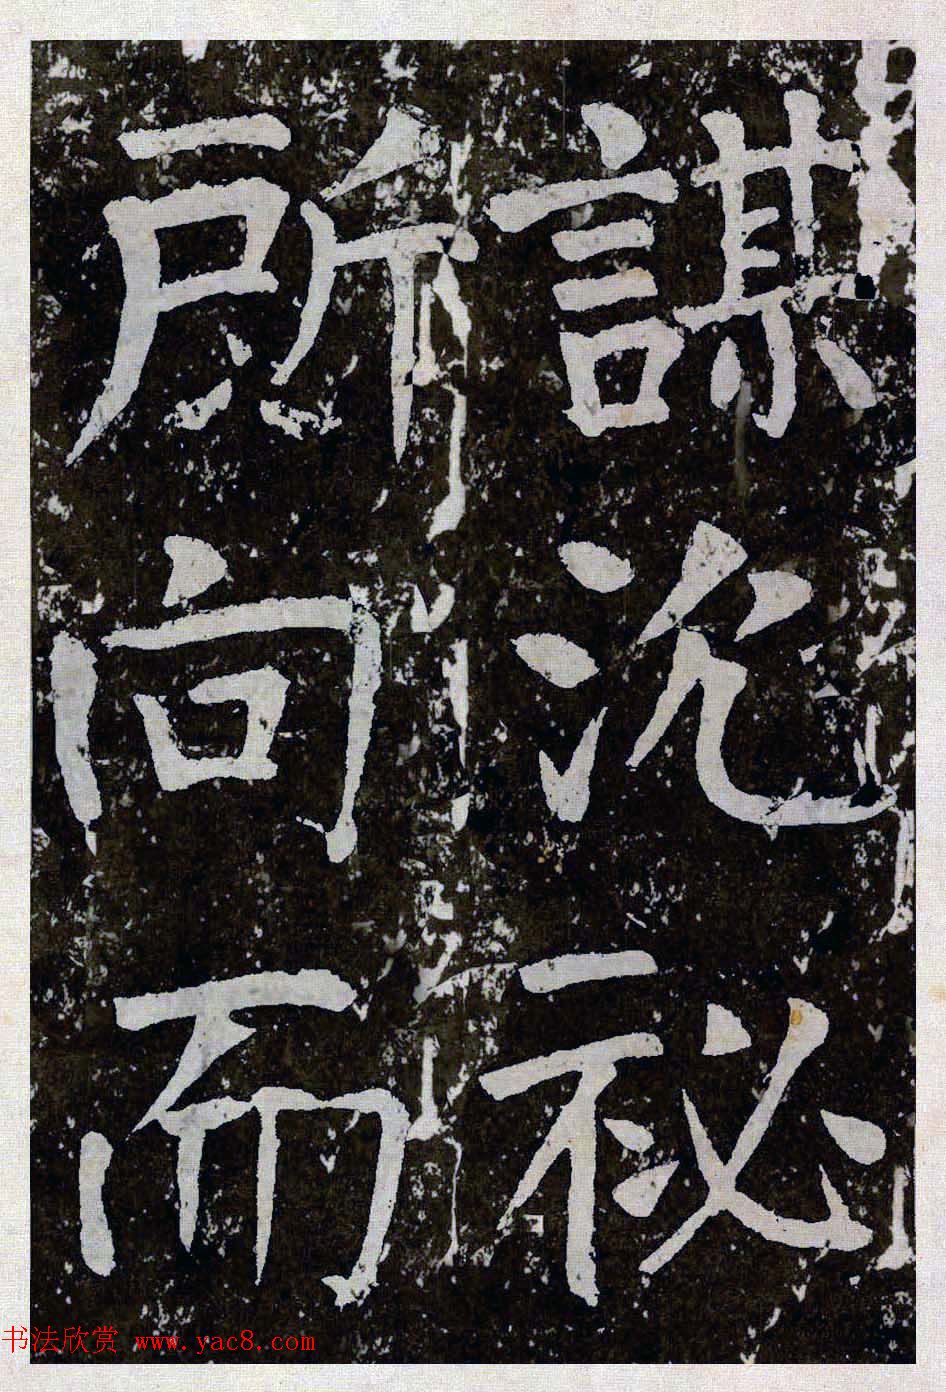 謀沉祕
所向而
书法欣赏 www.yac8.com